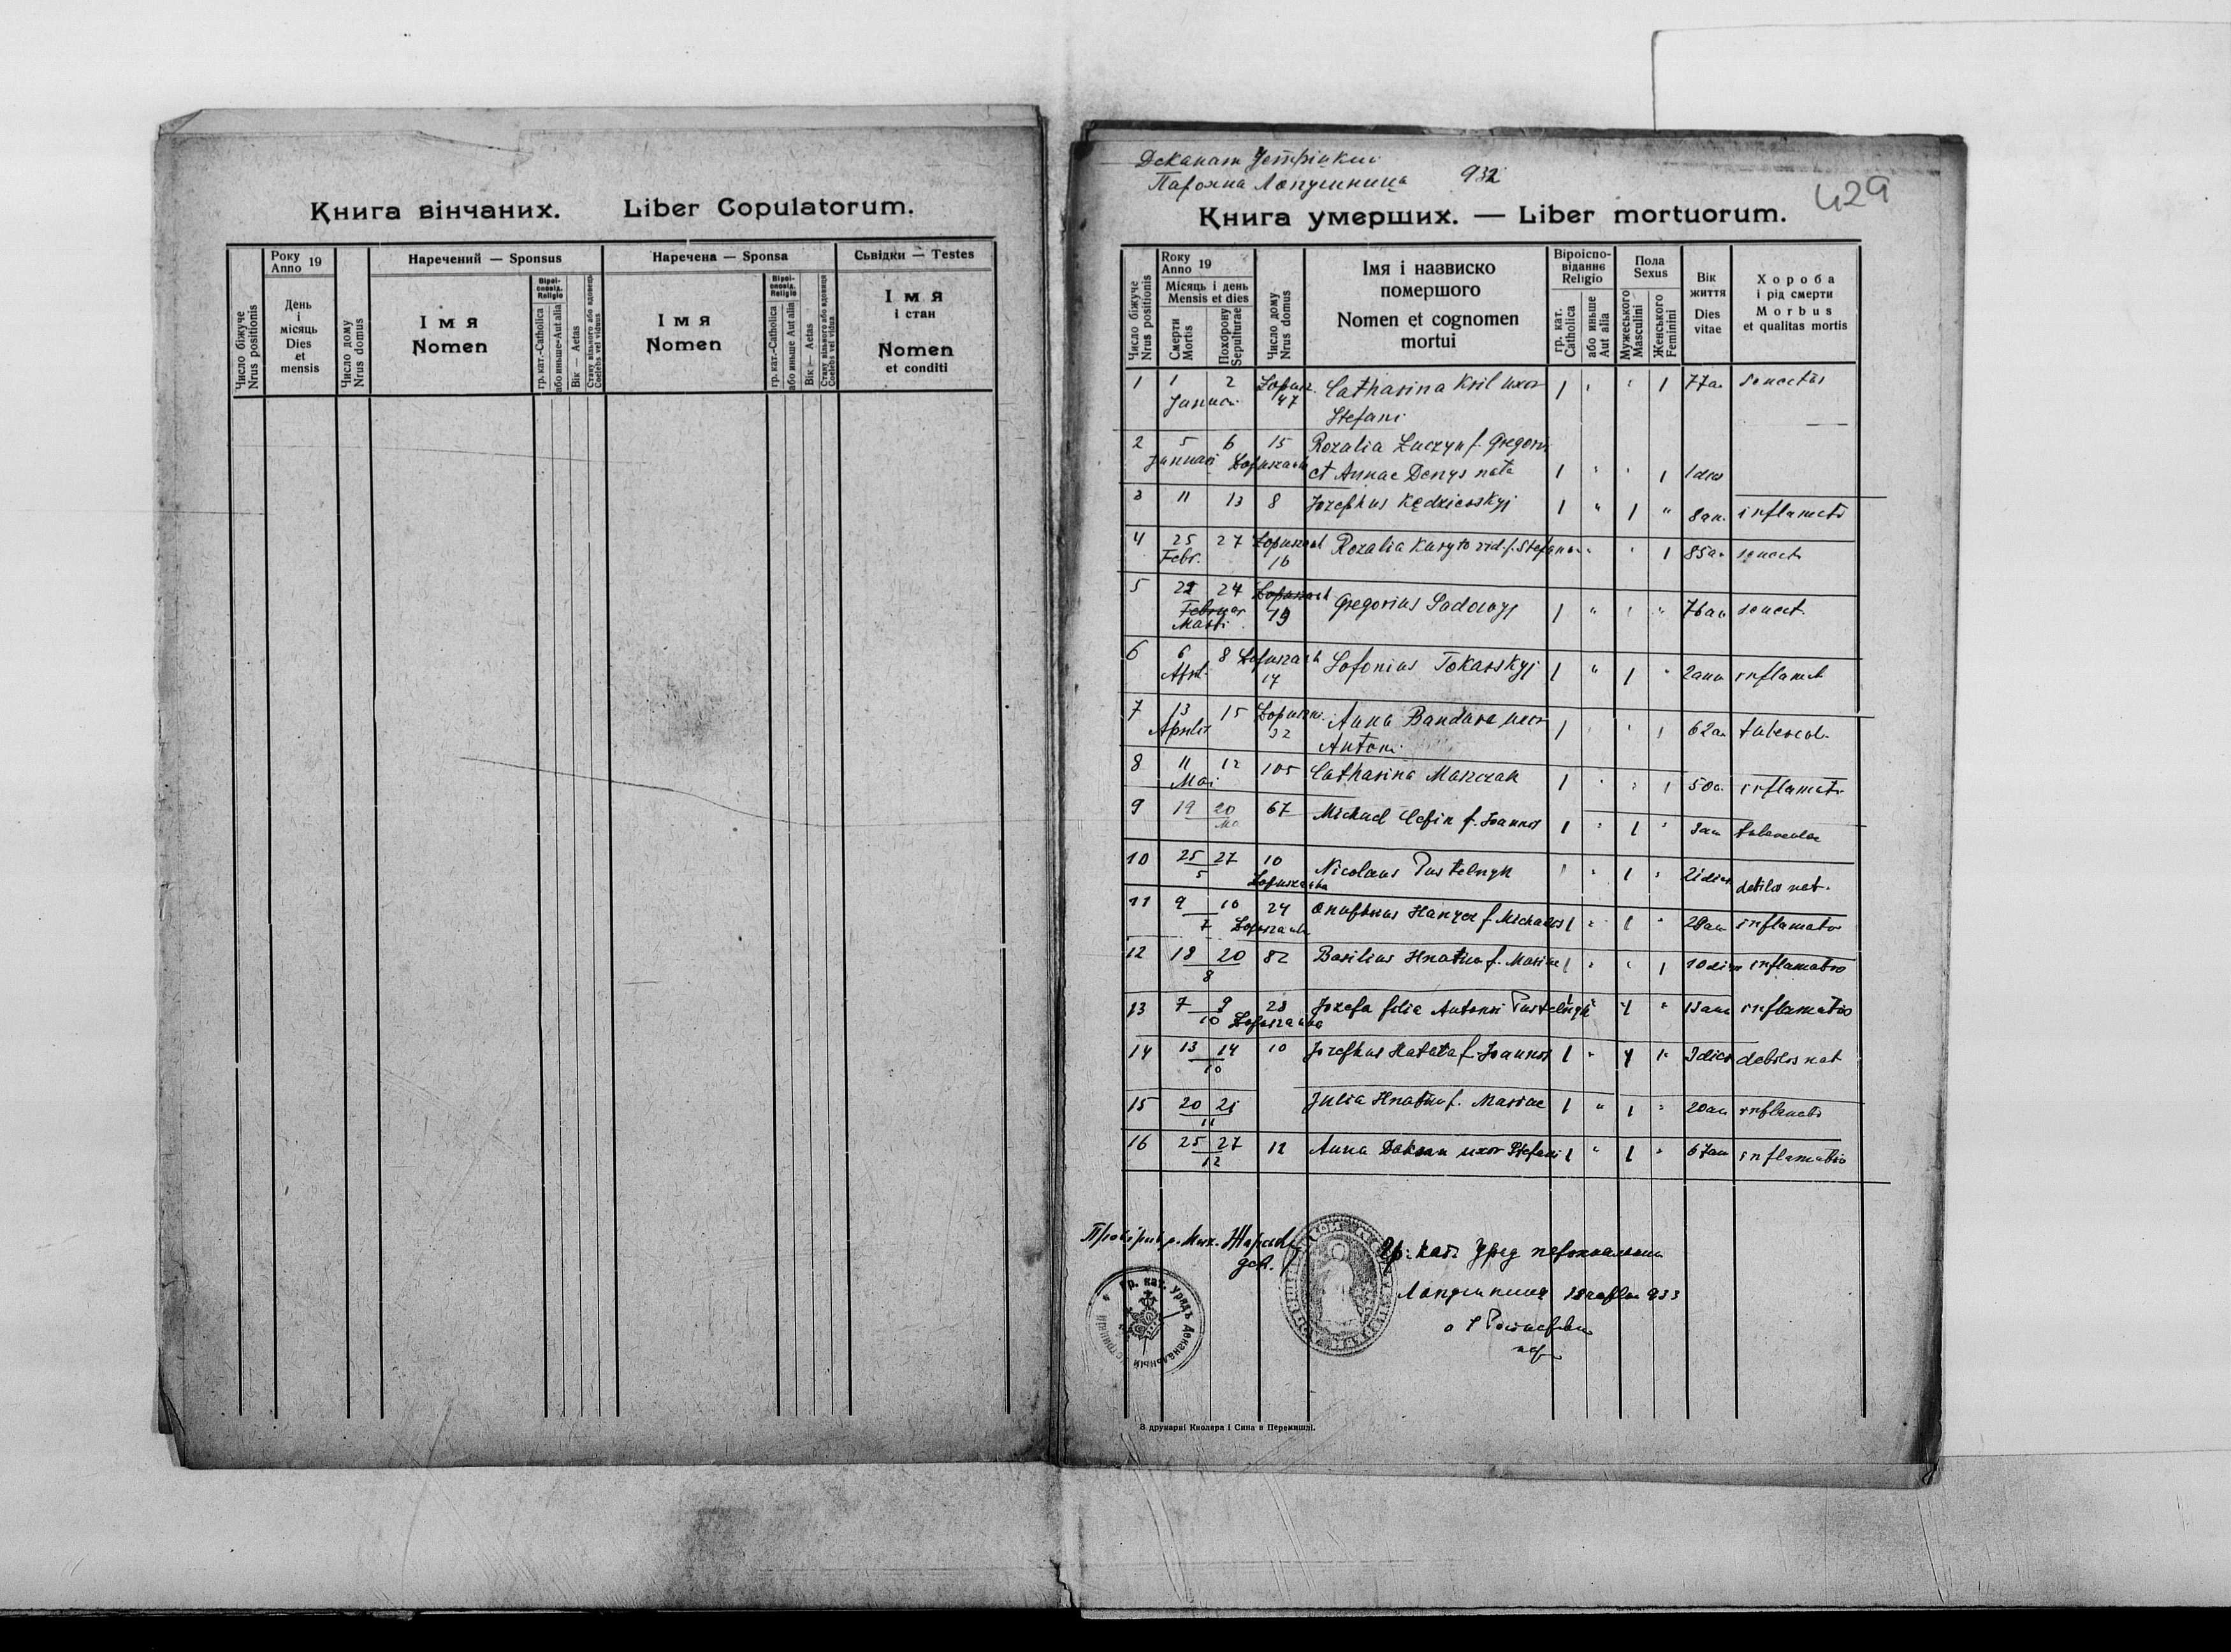 Книга вінчаних. Liber Copulatorum.
Число біжуче
Nrus positionis
Року
Anno 19
День
і
місяць
Dies
et
mensis
Число дому
Nrus domus
Наречений — Sponsus
Імя
Nomen
Віроі-
сповід.
Religio
гр. кат.-Catholica
або иньше-Aut alia
Вік — Aetas
Стану вільного або вдовець
Coelebs vel viduus
Наречена — Sponsa
Імя
Nomen
Віроі-
сповід.
Religio
гр. кат.-Catholica
або иньше Aut alia
Вік — Aetas
Стану вільного або вдовиця
Coelebs vel vidua
Сьвідки — Testes
Імя
і стан
Nomen
et conditi
Деканат Устріцкий
Парохиа Лопушниця 932
429
Книга умерших. — Liber mortuorum.
Число біжуче
Nrus positionis
Року
Anno 19
Місяць і день
Mensis et dies
Смерти
Mortis
Похорону
Sepulturae
Число дому
Nrus domus
Імя і назвиско
помершого
Nomen et cognomen
mortui
Віроіспо-
віданнє
Religio
гр. кат.
Catholica
або иньше
Aut alia
Пола
Sexus
Мужеського
Masculini
Женського
Feminini
Вік
життя
Dies
vitae
Хороба
і рід смерти
Morbus
et qualitas mortis
1 1 2 Łopusz. Catharina Kril uxor 1 " " 1 77 an senectus
Januar. 47 Stefani
2 5 6 15 Rozalia Łuczyn f. Gregori
Januari Łopuszanka et Annae Denys nata 1 " " 1 1 dies
3 11 13 8 Jozephus Kędzierskyj 1 " 1 " 8 an. inflamati
4 25 27 Łopuszank Rozalia vid. f. Stefana " " 1 85 a. senect.
Febr. 16
5 22 24 Łopuszank Gregorius Sadowyj 1 " " " 76 an senect.
Februar
Marti 19
6 6 8 Łopuszank Sofonius Tokarskyj 1 " 1 " 2 ann inflamat
April. 17
7 13 15 Łopuszn. Anna Bandura uxor 1 " " 1 62 an tubercul.
Aprilis 32 Antoni
8 11 12 105 Catharina Marczak 1 " " 1 50 a. inflamat.
Mai
9 19 20 67 Michael f. Joannis 1 " 1 " 3 an tubercolos
Ma
10 25 27 10 Nicolaus Pustelnyk 1 " 1 " 21 dies debilis nat.
5 Łopuszanka
11 9 10 24 Onufrius f. Michaelis 1 " 1 " 28 an inflamatio
7 Łopuszanka
12 18 20 82 Basilius Hnatiw f. Mariae 1 " " 1 10 dies inflamatio
8
13 7 9 28 Jozefa filia Antoni Pustelnyk 1 " 1 " 13 ann inflamatio
10 Łopuszanka
14 13 14 10 Jozephus f. Joannis 1 " 1 " 3 dies debilis nat
10
15 20 21 Julia Hnatiw f. Mariae 1 " 1 " 20 an inflamati
11
16 25 27 12 Anna uxor Stefani 1 " 1 " 67 an inflamatio
12
дек.
гр. кат. урядъ деканальный
Гр. кат. Уряд парохіальний
Лопушниця 933
о
В друкарні Кнолєра і Сина в Перемишлі.